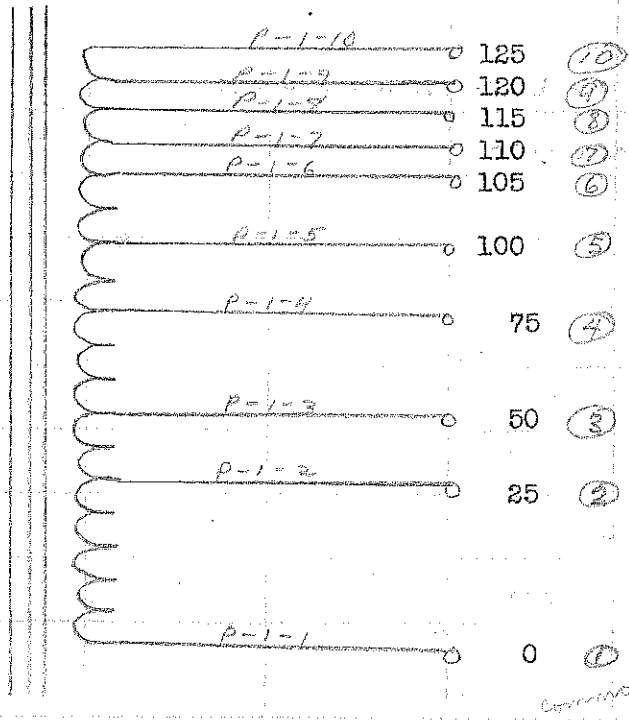 P-1-10 125 10
P-1-9 120 9
P-1-8 115 8
P-1-7 110 7
P-1-6 105 6
P-1-5 100 5
P-1-4 75 4
P-1-3 50 3
P-1-2 25 2
P-1-1 0 1